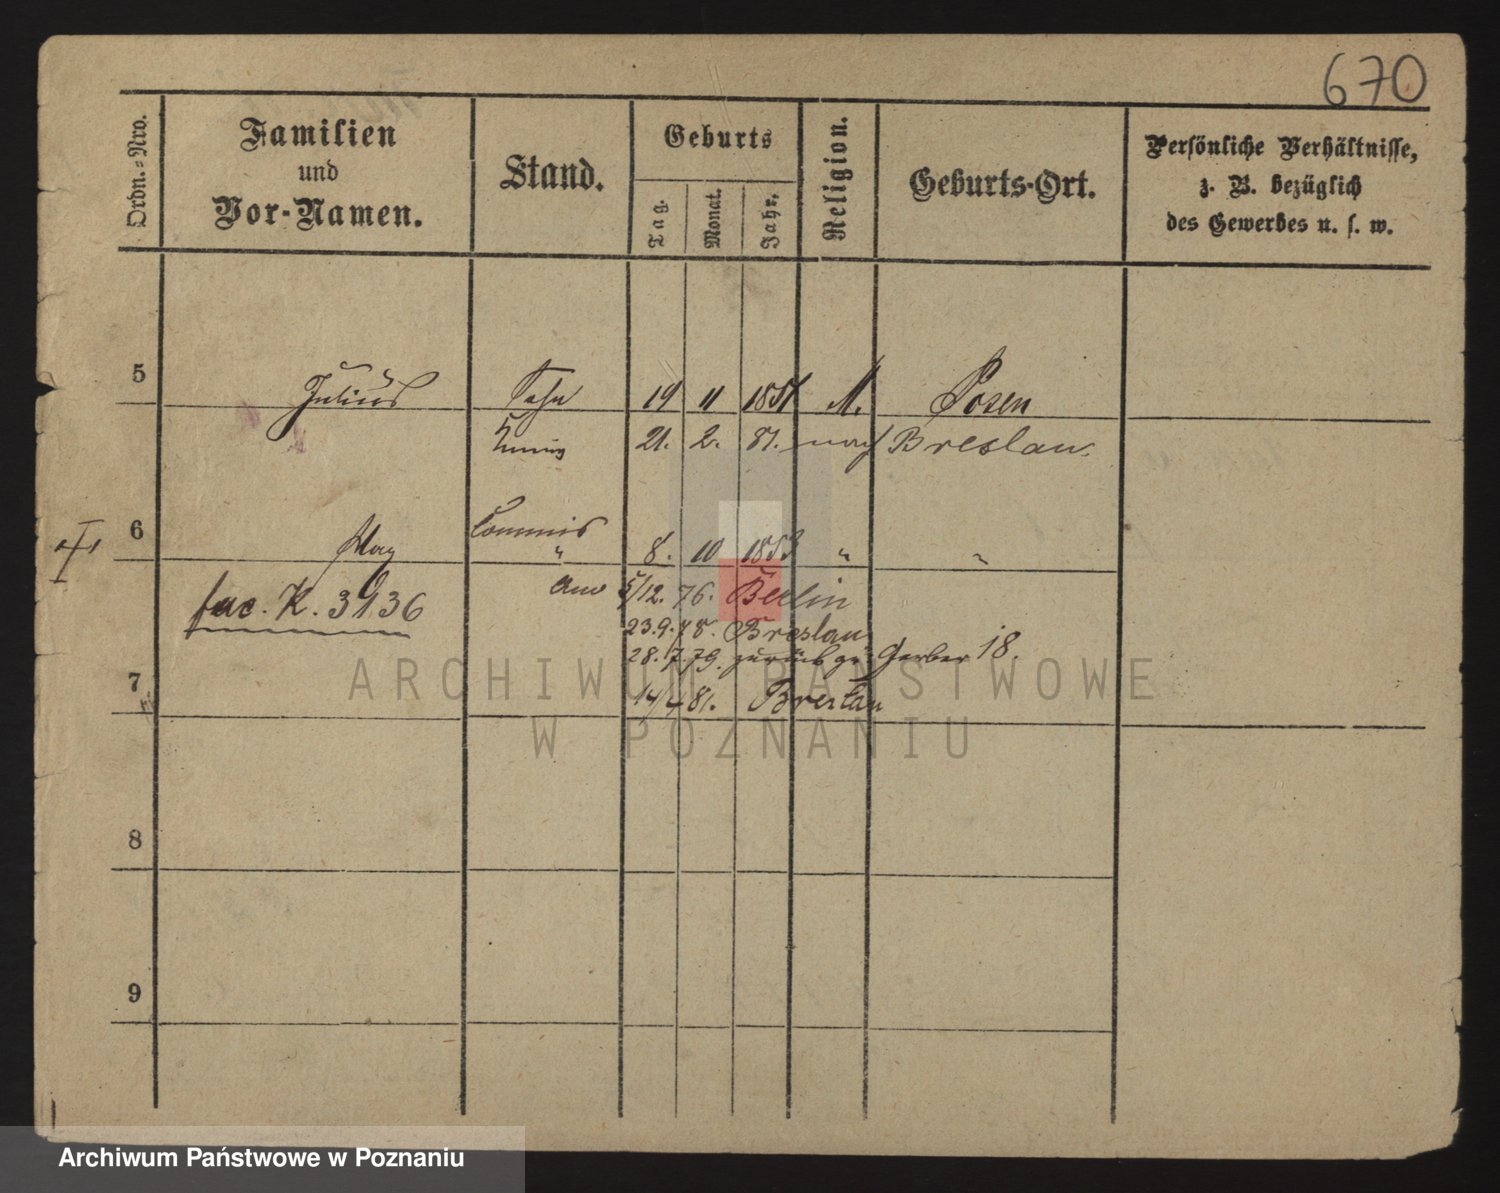 670
Ordn.-Nro.
Familien
und
Vor-Namen.
Stand.
Geburts
Tag.
Monat.
Jahr.
Religion.
Geburts-Ort.
Persönliche Verhältnisse,
z. B. bezüglich
des Gewerbes u. s. w.
5 Julius Sohn 19 11 1851 M. Posen
21. 2. 81. nach Breslau.
Commis
6 May " 8. 10 1853 " "
5/12. 76. Berlin
fuc. K. 3936
23.9.78. Breslau
28.7.79. zurück Gerber 18.
7
14/4 81. Breslau
8
9
ARCHIWUM PAŃSTWOWE
W POZNANIU
Archiwum Państwowe w Poznaniu